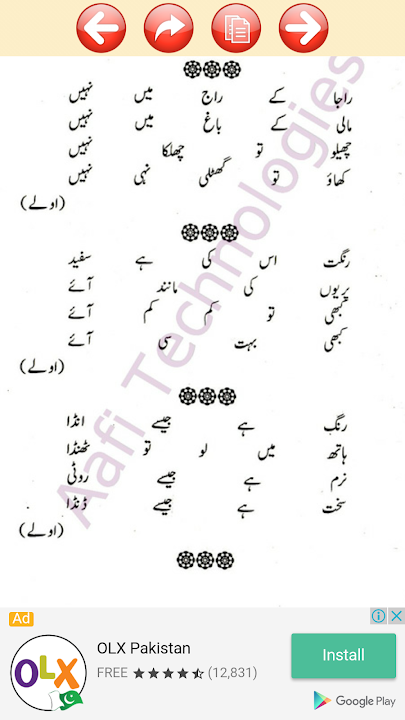 راجا کے راج میں نہیں
مالی کے باغ میں نہیں
چھیلو تو چھلکا نہیں
کھاؤ تو گھٹلی نہی نہیں
(اولے)
رنگت اس کی ہے سفید
پریوں کی مانند آئے
کبھی تو کم کم آئے
کبھی بہت سی آئے
(اولے)
رنگ ہے جیسے انڈا
ہاتھ میں لو تو ٹھنڈا
نرم ہے جیسے روٹی
سخت ہے جیسے ڈنڈا
(اولے)
Aafi Technologies
Ad
OLX Pakistan
FREE ★★★★⯪ (12,831)
Install
OLX
Google Play